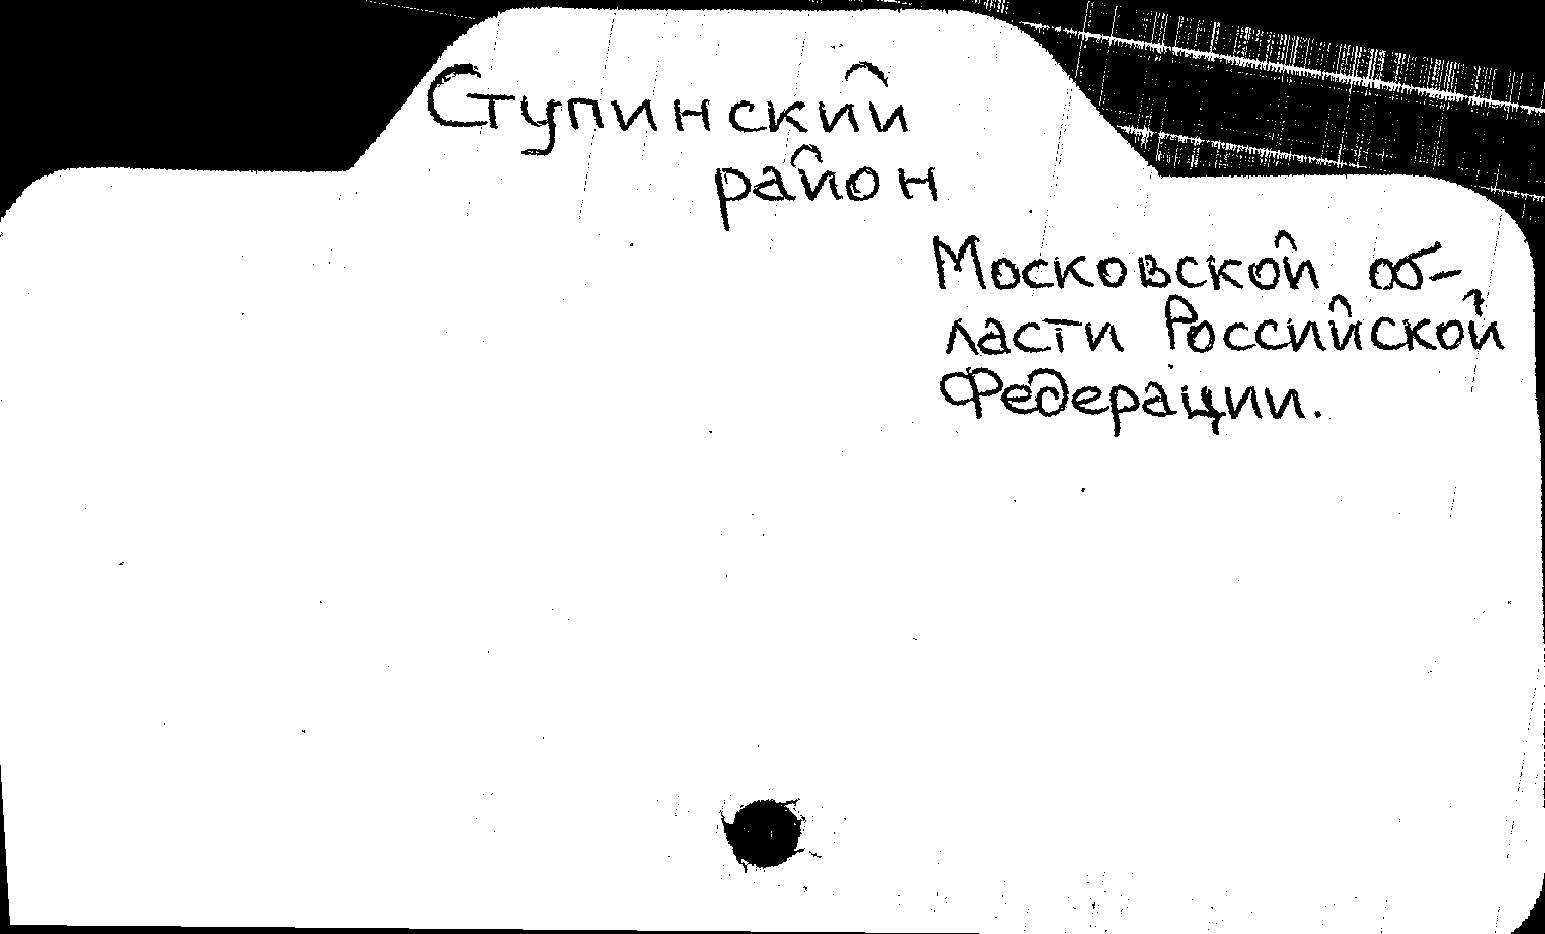 Ступинский
район
Московской об-
ласти Российской
Федерации.